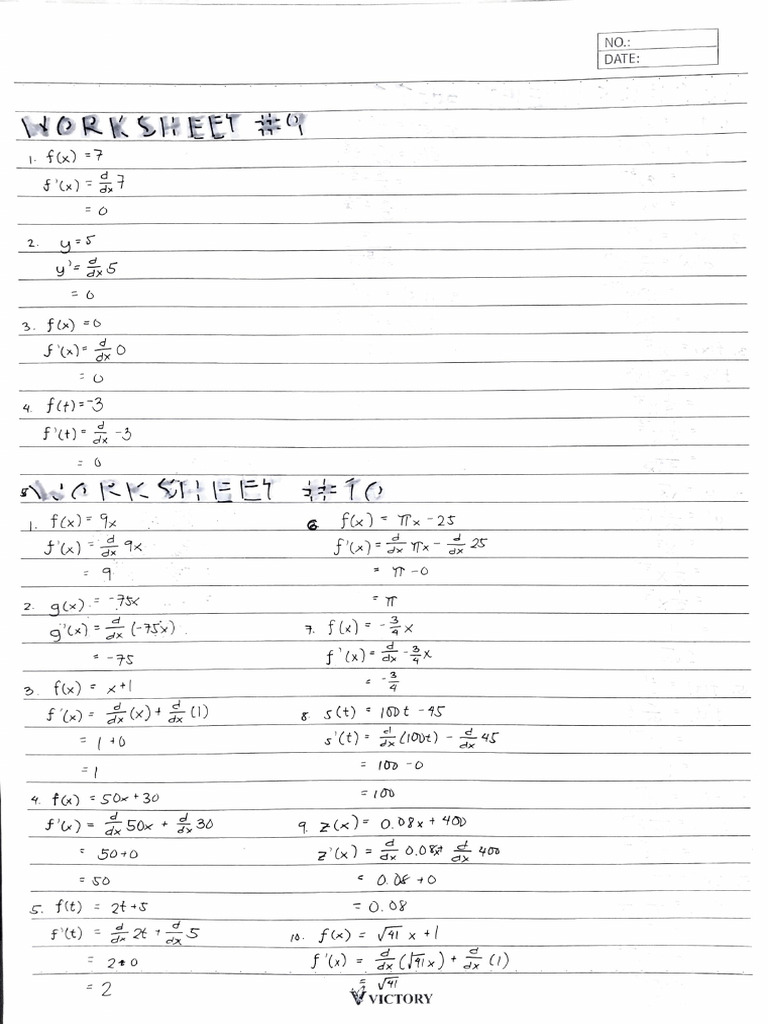 NO.:
DATE:
WORKSHEET #9
1. f(x) = 7
f'(x) = d/dx 7
= 0
2. y = 5
y' = d/dx 5
= 0
3. f(x) = 0
f'(x) = d/dx 0
= 0
4. f(t) = -3
f'(t) = d/dx -3
= 0
WORKSHEET #10
1. f(x) = 9x
f'(x) = d/dx 9x
= 9
2. g(x) = -75x
g'(x) = d/dx (-75x)
= -75
3. f(x) = x+1
f'(x) = d/dx (x) + d/dx (1)
= 1+0
= 1
4. f(x) = 50x+30
f'(x) = d/dx 50x + d/dx 30
= 50+0
= 50
5. f(t) = 2t+5
f'(t) = d/dx 2t + d/dx 5
= 2+0
= 2
6 f(x) = πx - 25
f'(x) = d/dx πx - d/dx 25
= π - 0
= π
7. f(x) = -3/4 x
f'(x) = d/dx -3/4 x
= -3/4
8. s(t) = 100t - 45
s'(t) = d/dx (100t) - d/dx 45
= 100 - 0
= 100
9. z(x) = 0.08x + 400
z'(x) = d/dx 0.08x + d/dx 400
= 0.08 + 0
= 0.08
10. f(x) = √41 x + 1
f'(x) = d/dx (√41 x) + d/dx (1)
= √41
VICTORY